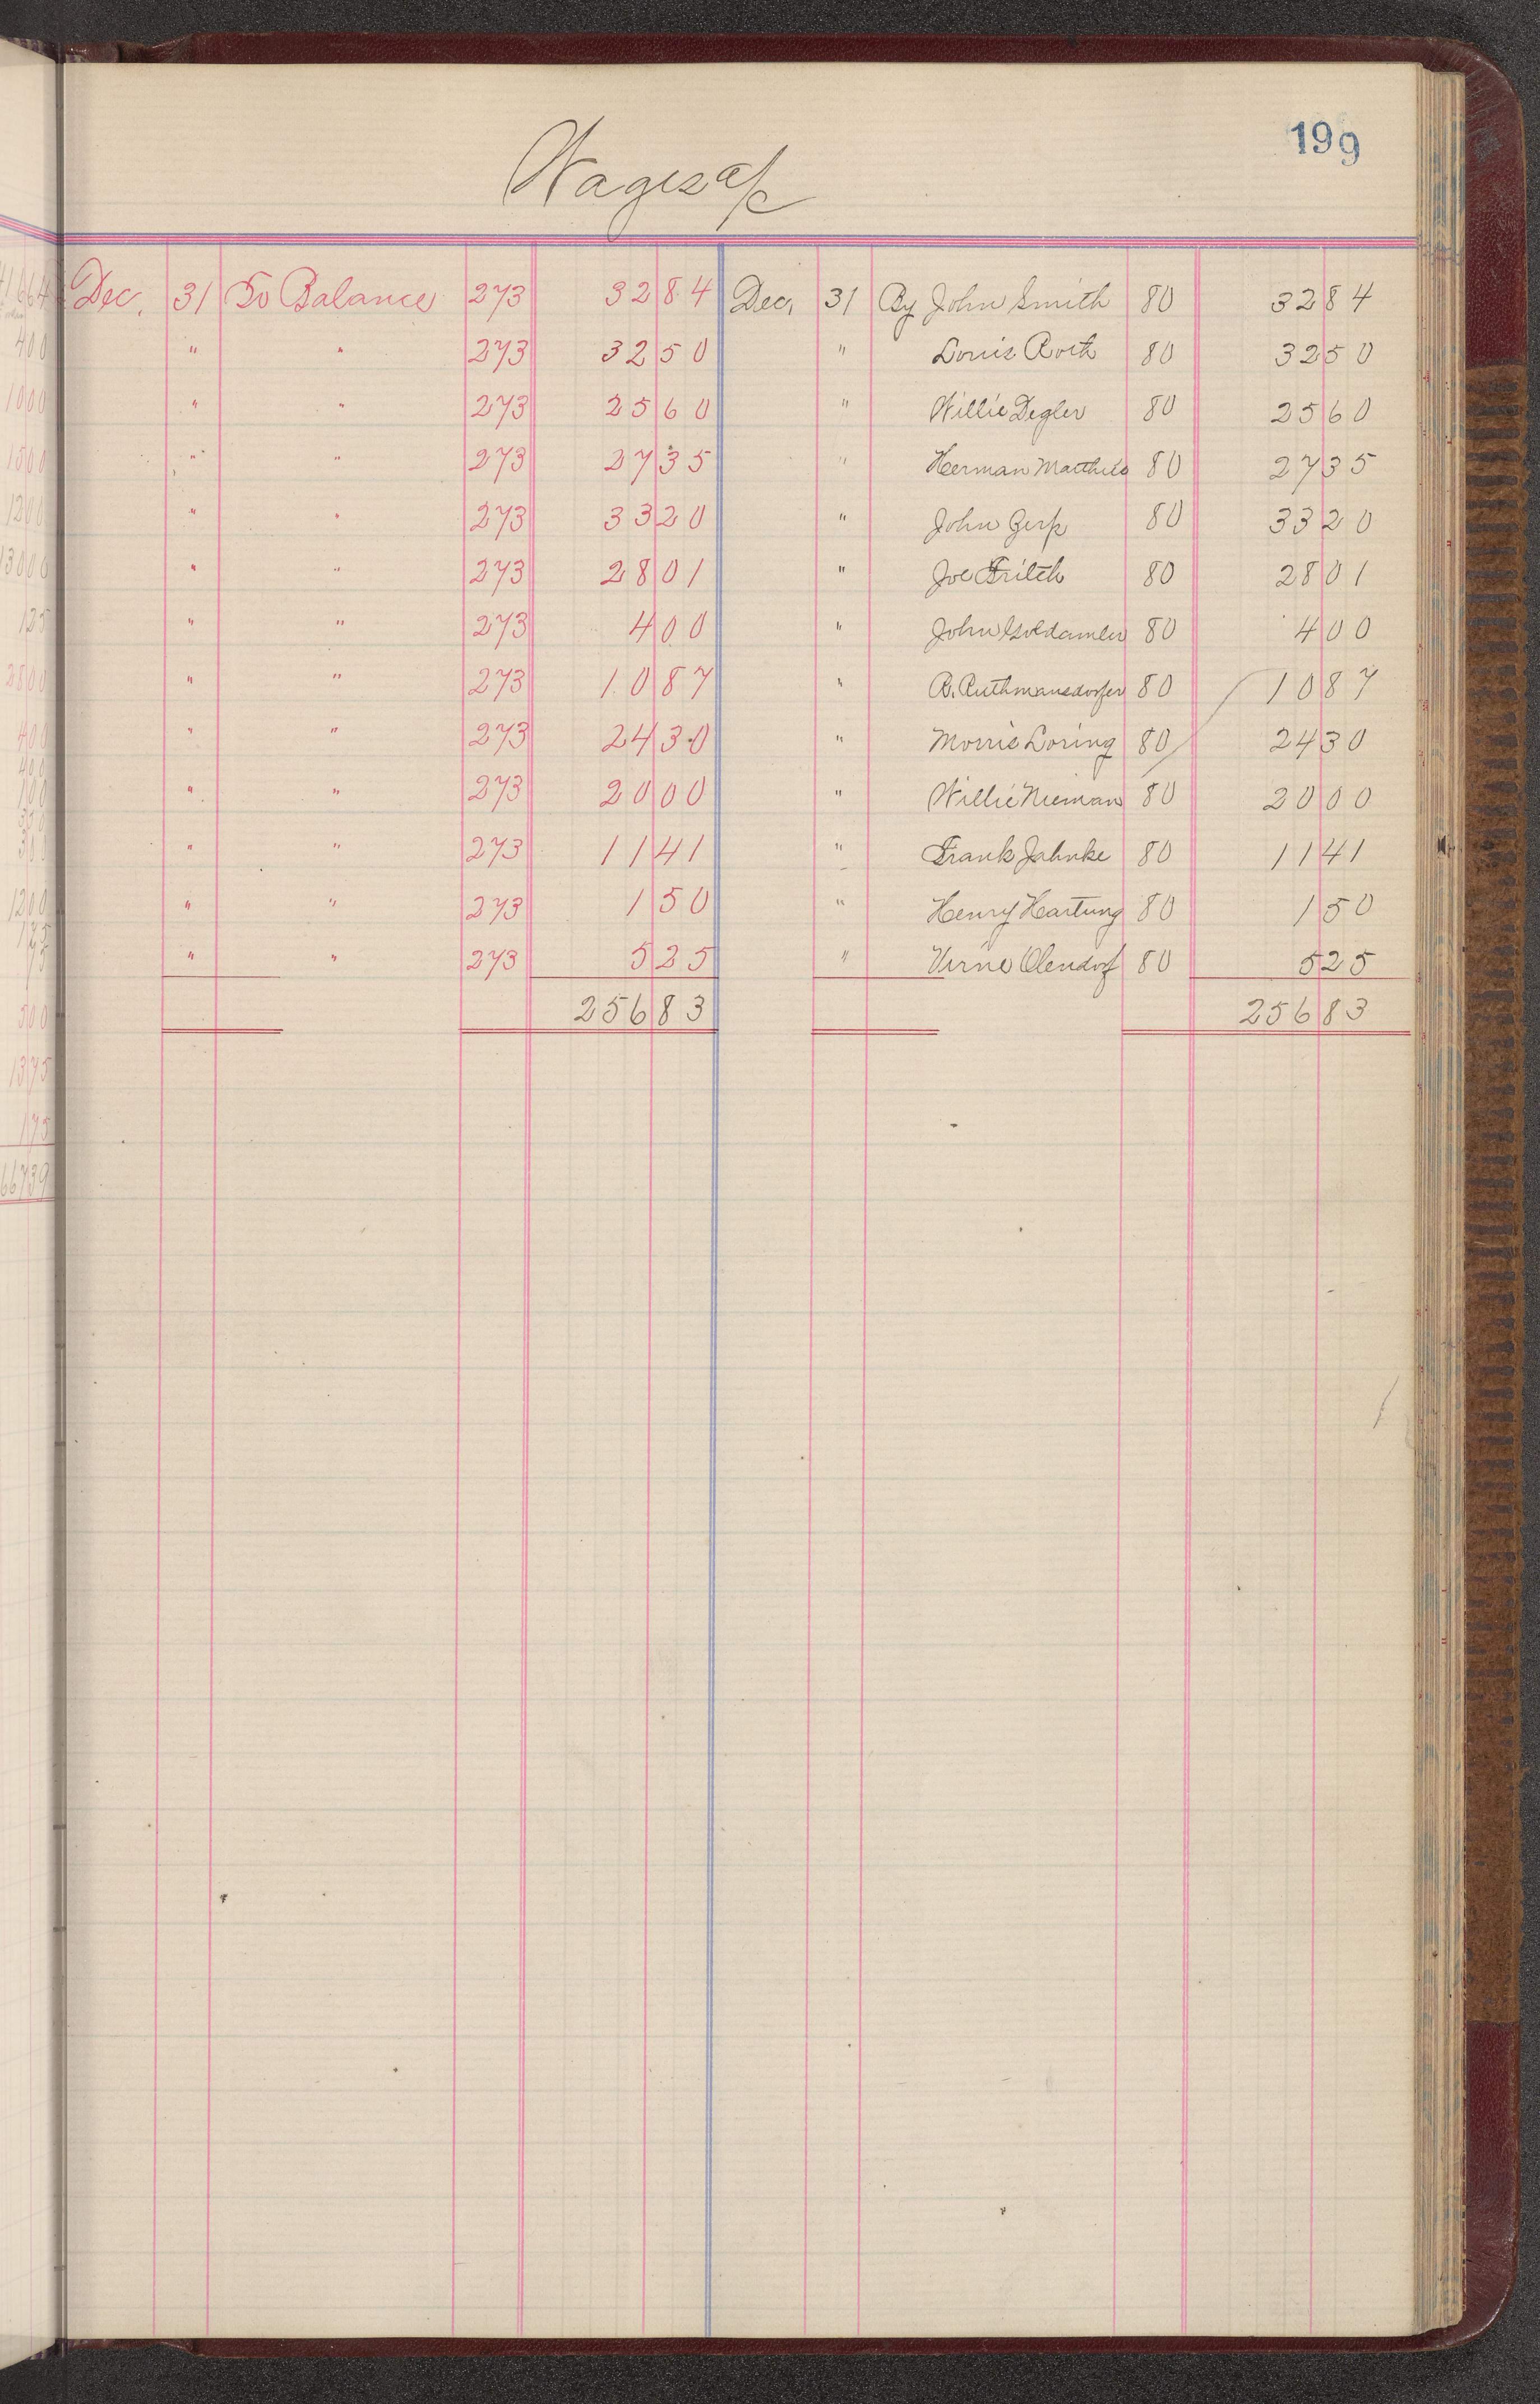 199
Wages a/c
Dec. 31 To Balance 273 32 84 Dec. 31 By John Smith 80 32 84
" " 273 32 50 " Louis Roth 80 32 50
" " 273 25 60 " Willie Degler 80 25 60
" " 273 27 35 " Herman 80 27 35
" " 273 33 20 " John 80 33 20
" " 273 28 01 " Joe Fritch 80 28 01
" " 273 4 00 " John 80 4 00
" " 273 10 87 " R. Ruthmansdorfer 80 10 87
" " 273 24 30 " Morris Loring 80 24 30
" " 273 20 00 " Willie Nieman 80 20 00
" " 273 11 41 " Frank Jahnke 80 11 41
" " 273 1 50 " Henry Hartung 80 1 50
" " 273 5 25 " Verne Olendorf 80 5 25
256 83 256 83